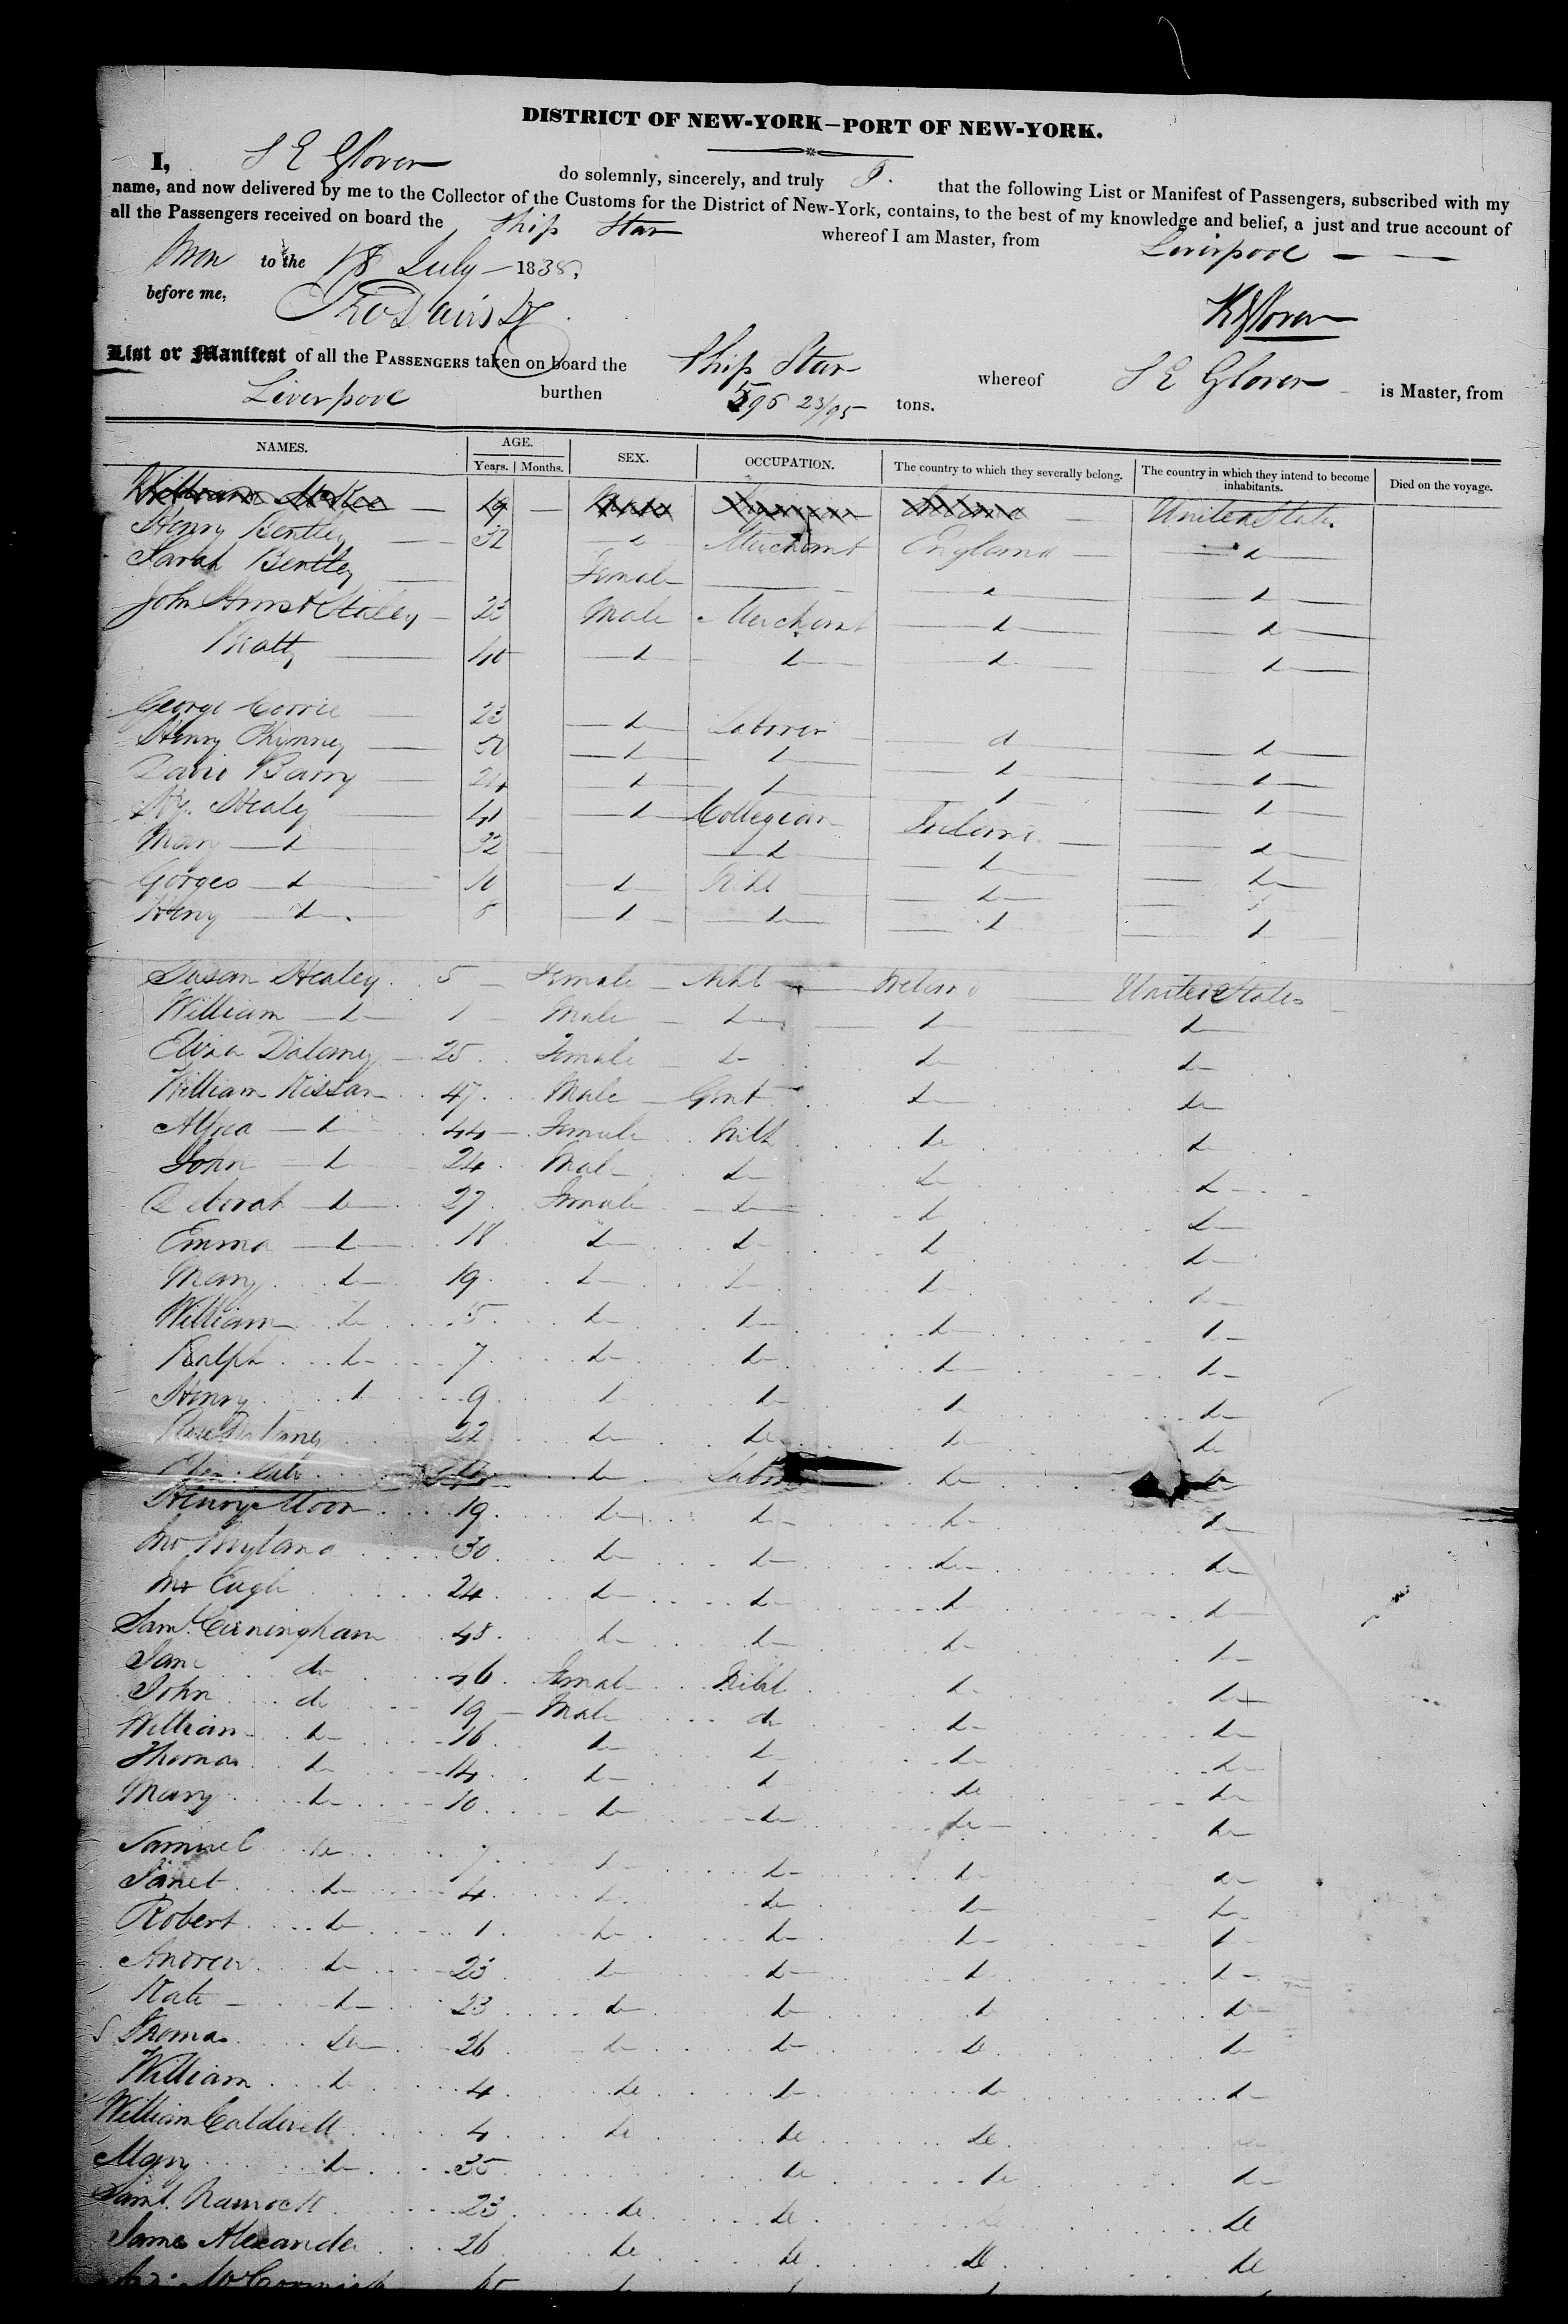 DISTRICT OF NEW-YORK—PORT OF NEW-YORK.
I, S E Glover do solemnly, sincerely, and truly that the following List or Manifest of Passengers, subscribed with my
name, and now delivered by me to the Collector of the Customs for the District of New-York, contains, to the best of my knowledge and belief, a just and true account of
all the Passengers received on board the Ship Star whereof I am Master, from Liverpool
to the 18 July 1838,
before me,
List or Manifest of all the PASSENGERS taken on board the Ship Star whereof S E Glover is Master, from
Liverpool burthen 596 23/95 tons.
NAMES. AGE. Years. Months. SEX. OCCUPATION. The country to which they severally belong. The country in which they intend to become inhabitants. Died on the voyage.
19 United States
Henry Bentley 32 d Merchant England d
Sarah Bentley Female d d
John Staley 23 Male Merchant d d
40 d d d d
George Corrie 23 d Laborer d d
Henry Phinney 50 d d d d
David Barry 24 d d d d
Healy 41 d Collegian Ireland d
Mary d 32 d d d
Gorges d 10 d d d
Henry d 6 d d d d
Susan Healey 5 Female Nihl Ireland United States
William d 1 Male d d d
Eliza Dalaney 25 Female d d d
William 47 Male Gent d d
d 44 Female Nihl d d
John d 24 Male d d d
Deborah do 27 Female do d d
Emma d 18 do d d do
Mary do 19 d d d
William do 5 do do do d
Ralph do 7 do do do do
Henry d 9 d do d do
22 do do do do
do Labor do do
Henry Moor 19 do do do do
30 do do do do
24 do do d d
Saml. Cuningham 48 do do do do
Jane do 46 Female Nihl do do
John do 19 Male do do do
William do 16 do do do do
Thomas do 14 do d do do
Mary do 10 do do do do
Samuel do 7 d do do do
Janet do 4 do do do
Robert do 1 do do do d
Andrew do 23 do do d do
Kate do 23 do do d do
Thomas do 26 do do do do
William do 4 do do do do
William Caldwell 4 do do do
Mary do 35 do do do
Saml. 23 do do do
James Alexander 26 do do do do
McCormick